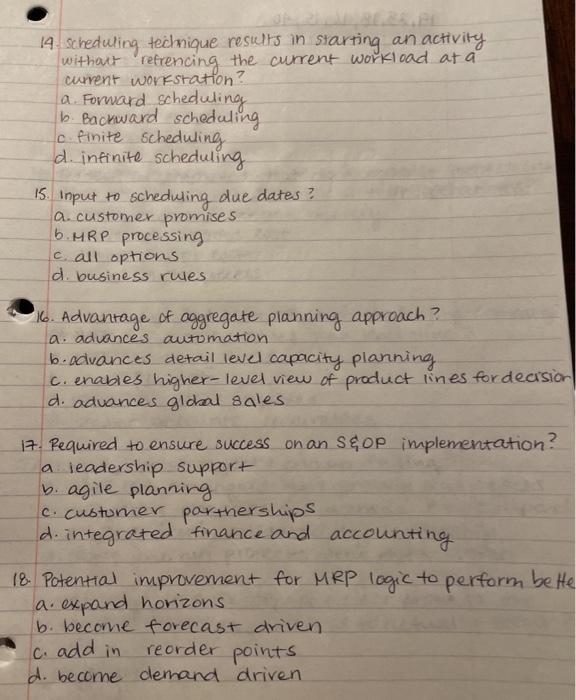 14. scheduling technique results in starting an activity
without refrencing the current workload at a
current workstation?
a. Forward scheduling
b. Backward scheduling
c. finite scheduling
d. infinite scheduling
15. Input to scheduling due dates?
a. customer promises
b. MRP processing
c. all options
d. business rules
16. Advantage of aggregate planning approach?
a. advances automation
b. advances detail level capacity planning
c. enables higher-level view of product lines for decision
d. advances global sales
17. Required to ensure success on an S&OP implementation?
a. leadership support
b. agile planning
c. customer partnerships
d. integrated finance and accounting
18. Potential improvement for MRP logic to perform bette
a. expand horizons
b. become forecast driven
c. add in reorder points
d. become demand driven